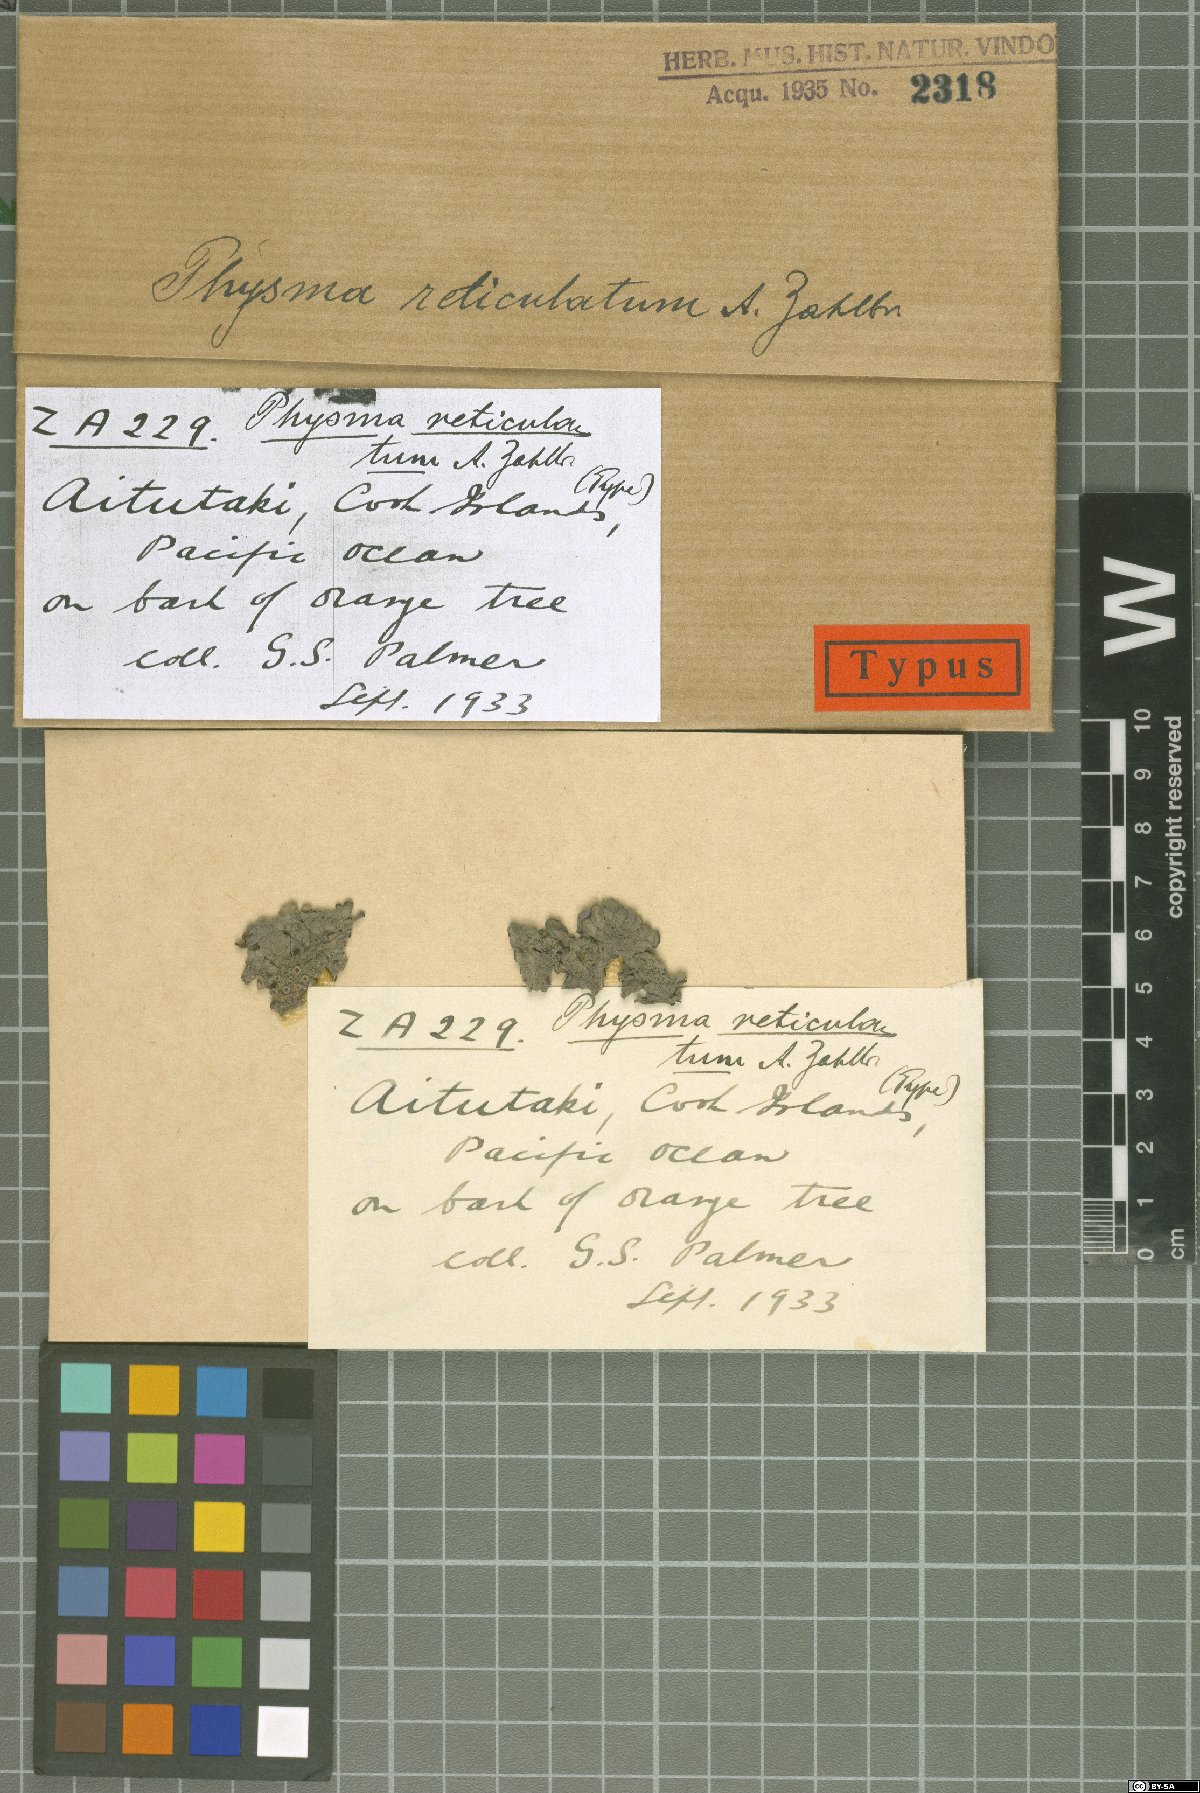 HERB. MUS. HIST. NATUR. VINDO
Acqu. 1935 No. 2318
Physma reticulatum A. Zahlbr.
Z A 229. Physma reticula-
tum A. Zahlbr.
(Type)
Aitutaki, Cook Islands,
Pacific Ocean
on bark of orange tree
coll. G.S. Palmer
Sept. 1933
Typus
Z A 229. Physma reticula-
tum A. Zahlbr.
(Type)
Aitutaki, Cook Islands,
Pacific Ocean
on bark of orange tree
coll. G.S. Palmer
Sept. 1933
W
0 1 2 3 4 5 6 7 8 9 10
cm
copyright reserved
cc BY-SA